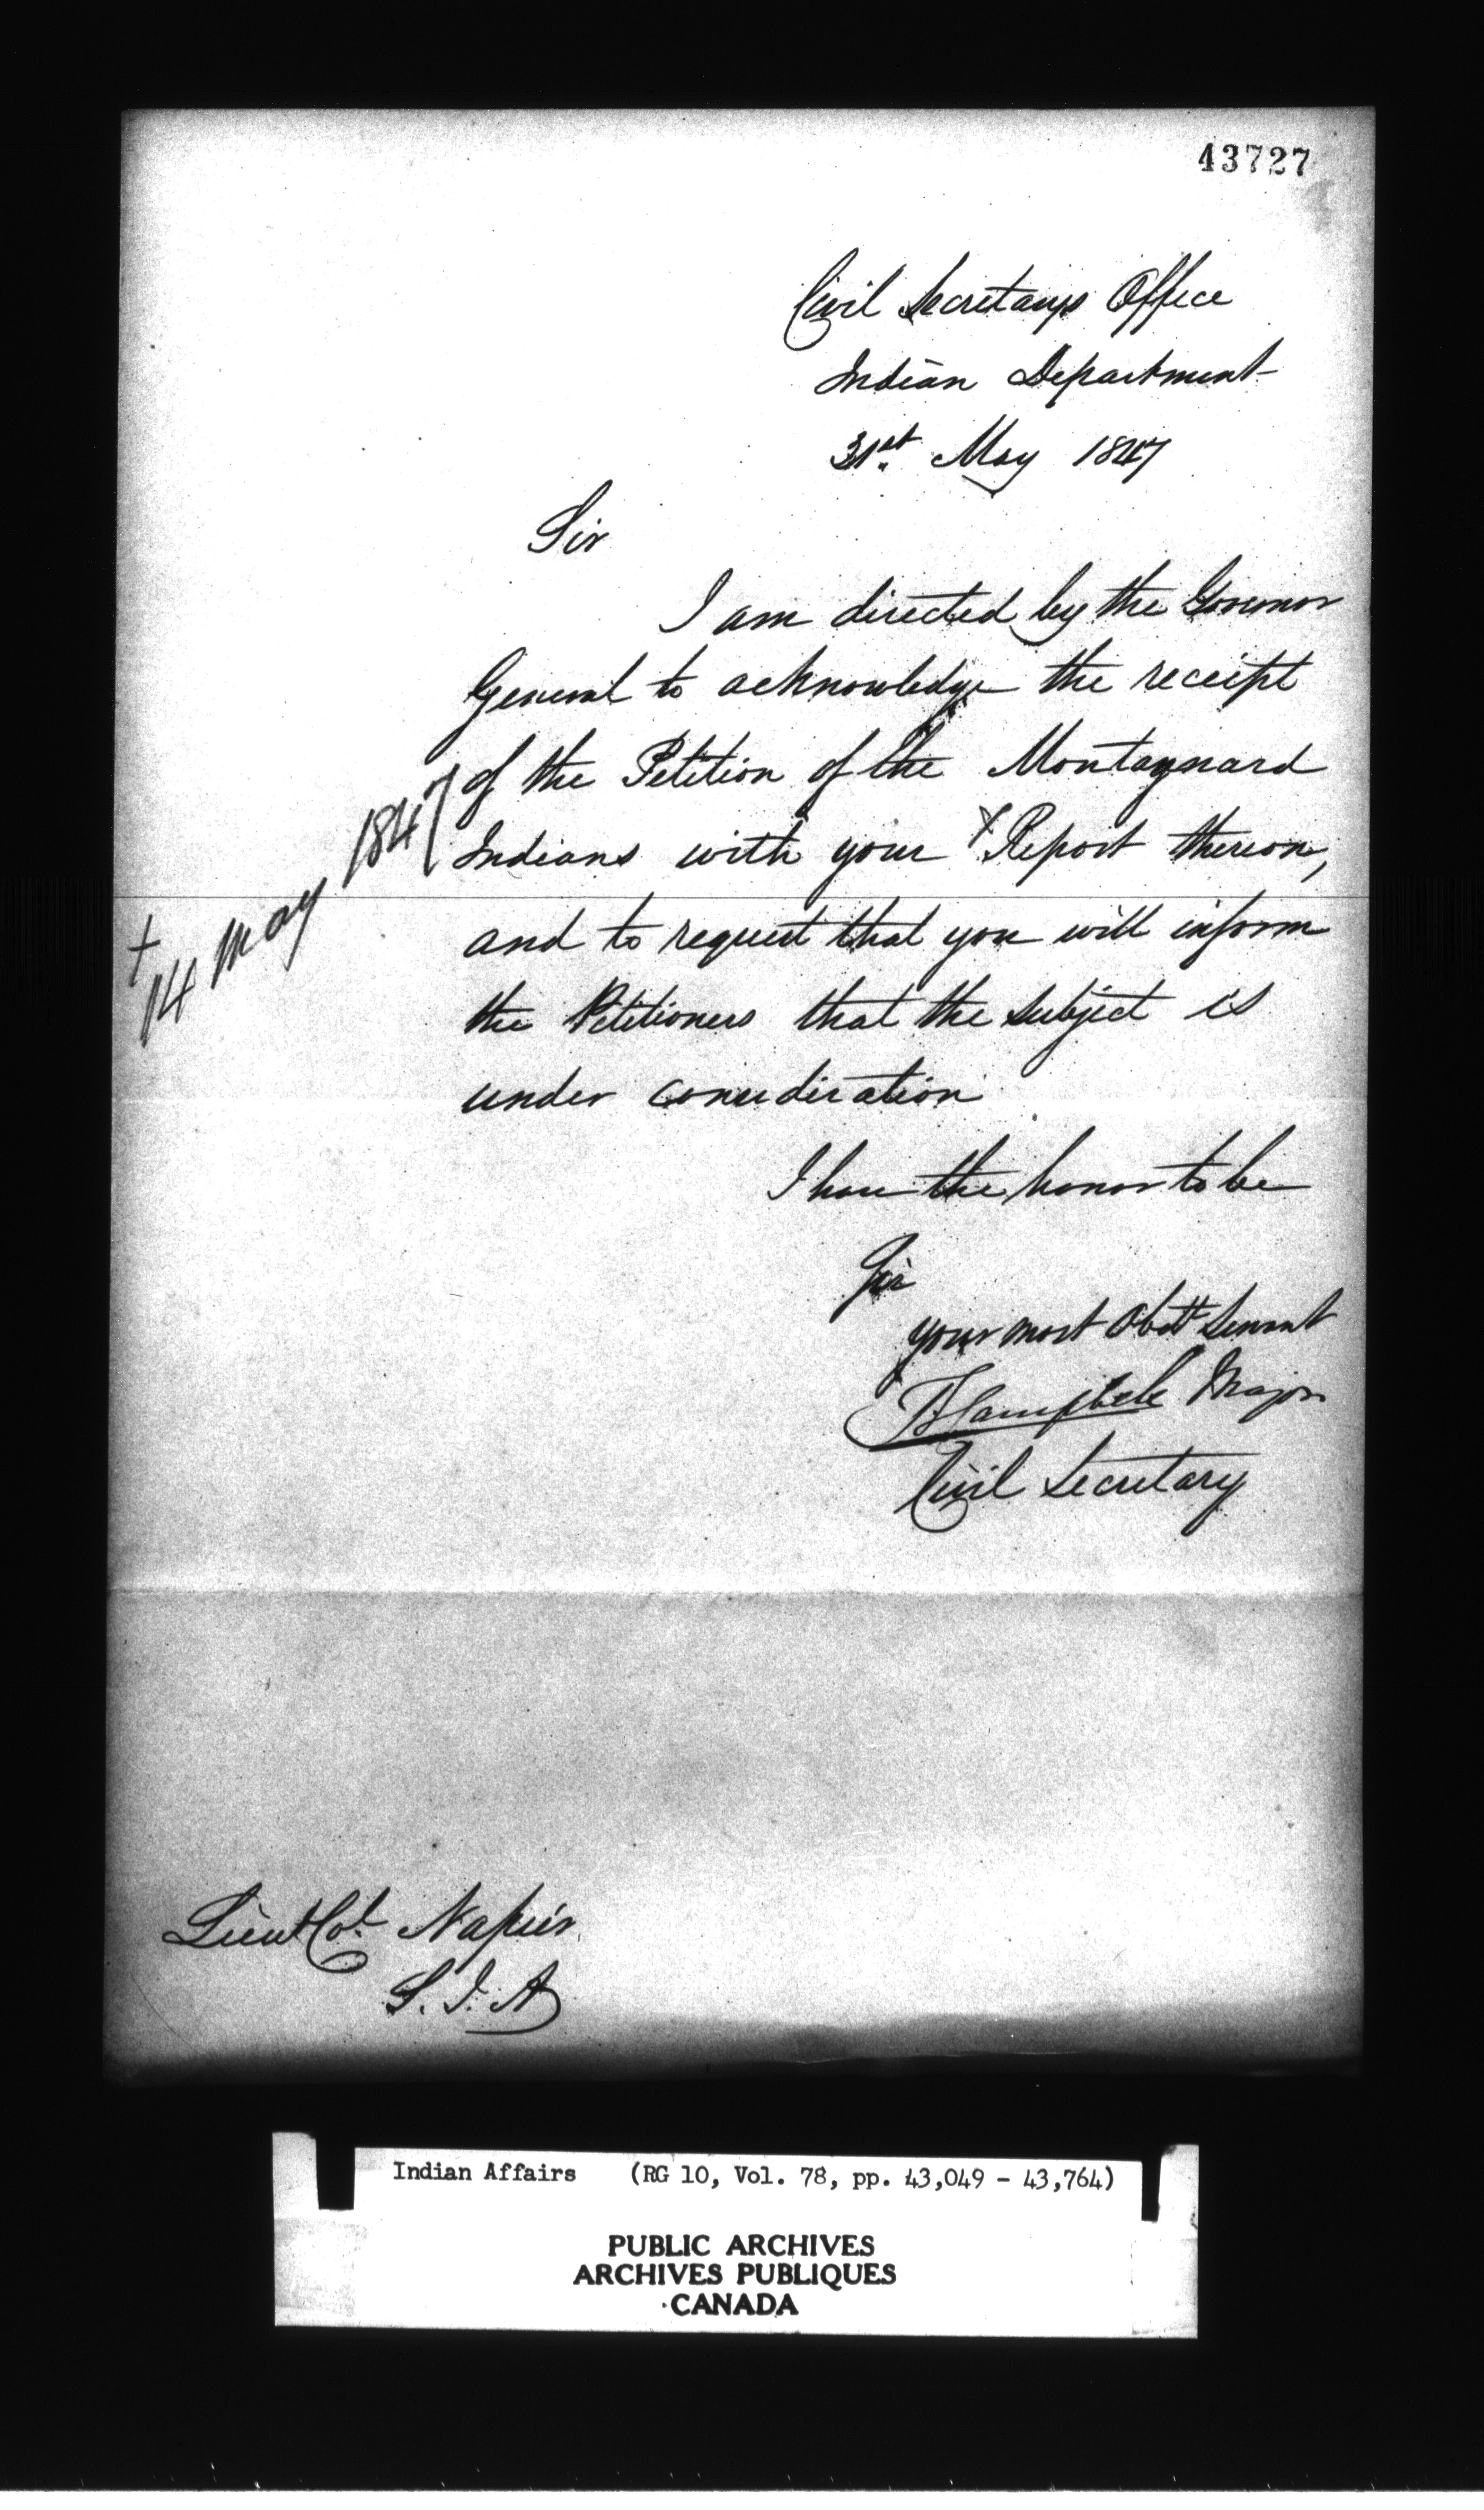 43727
Civil Secretarys Office
Indian Department
31st May 1847
Sir
I am directed by the Governor
General to acknowledge the receipt
of the Petition of the Montagnard
Indians with your x Report thereon,
+ 14 May 1847
and to request that you will inform
the Petitioners that the subject is
under consideration
I have the honor to be
Sir
your most Obdt Servant
T. Campbell Major
Civil Secretary
Lieut Col. Napier
S. I. A
Indian Affairs (RG 10, Vol. 78, pp. 43,049 - 43,764)
PUBLIC ARCHIVES
ARCHIVES PUBLIQUES
CANADA